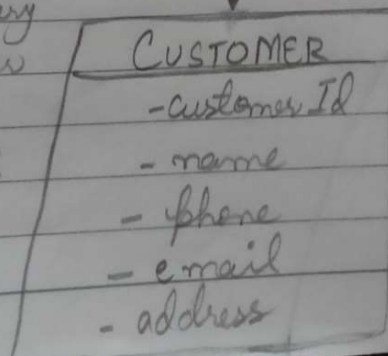 CUSTOMER
- customer Id
- name
- phone
- email
- address